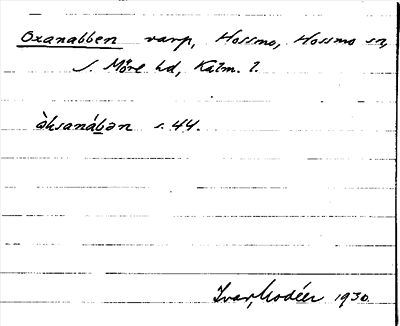 Oxanabben varp, Hossmo, Hossmo sn,
S. Möre hd, Kalm. l.
òksanábən s. 44.
Ivar Modéer 1930.